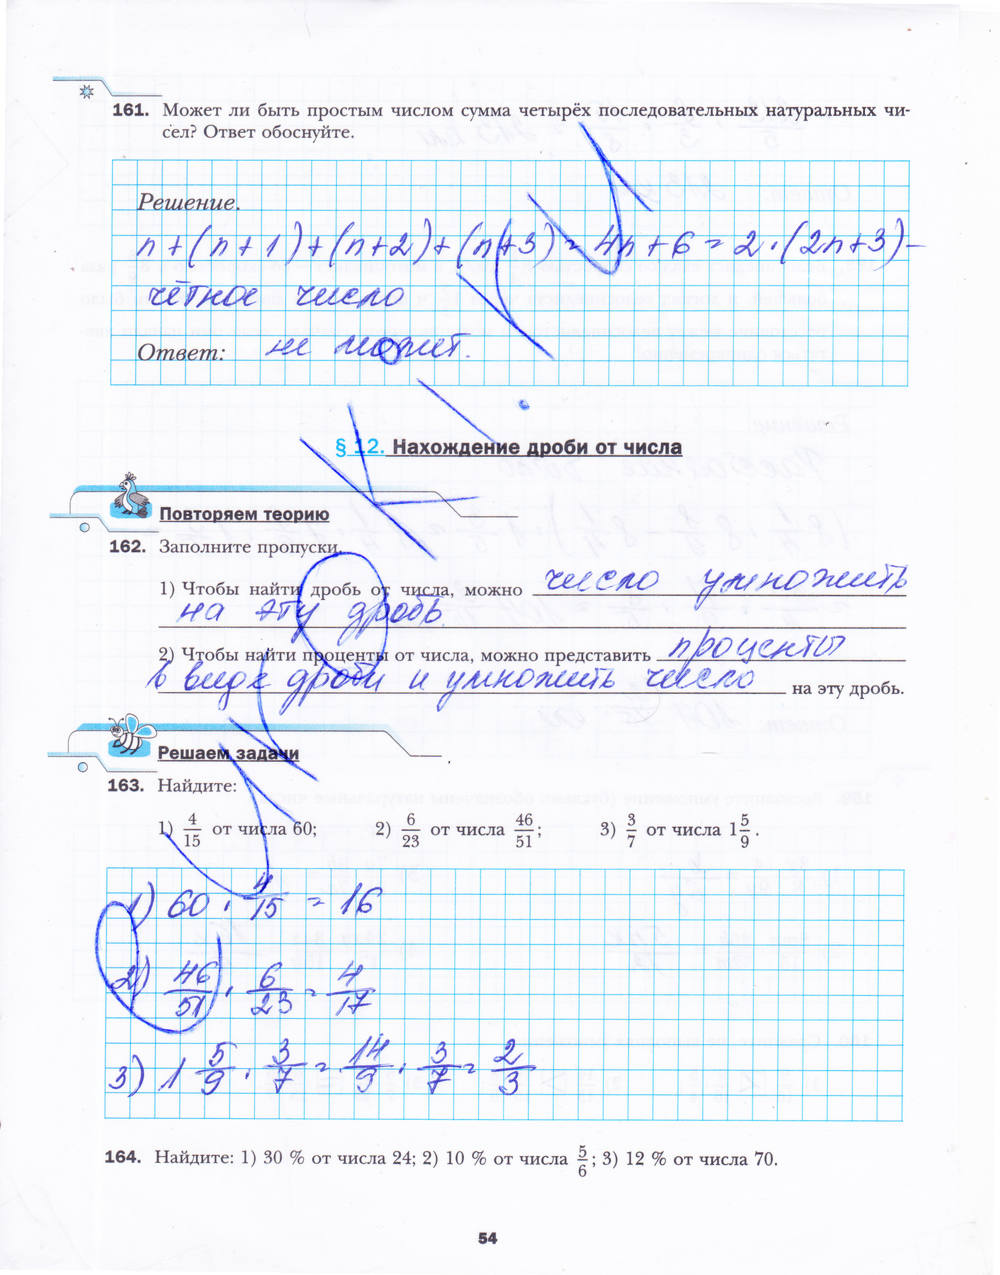 161. Может ли быть простым числом сумма четырёх последовательных натуральных чи-
сел? Ответ обоснуйте.
Решение.
n+(n+1)+(n+2)+(n+3)=4n+6=2·(2n+3)–
чётное число
Ответ: не может.
§ 12. Нахождение дроби от числа
Повторяем теорию
162. Заполните пропуски.
1) Чтобы найти дробь от числа, можно число умножить
на эту дробь.
2) Чтобы найти проценты от числа, можно представить проценты
в виде дроби и умножить число на эту дробь.
Решаем задачи
163. Найдите:
1) 4/15 от числа 60; 2) 6/23 от числа 46/51; 3) 3/7 от числа 1 5/9.
1) 60 · 4/15 = 16
2) 46/51 · 6/23 = 4/17
3) 1 5/9 · 3/7 = 14/9 · 3/7 = 2/3
164. Найдите: 1) 30 % от числа 24; 2) 10 % от числа 5/6; 3) 12 % от числа 70.
54